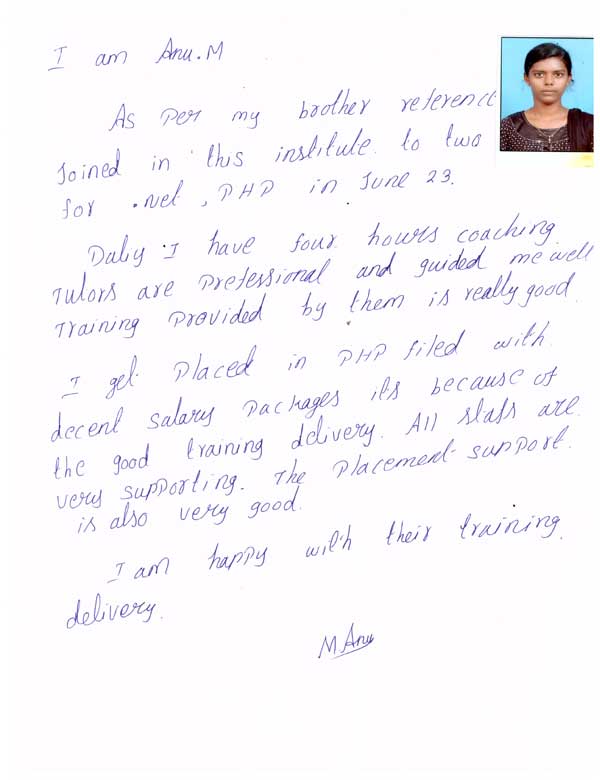 I am Anu.M
As per my brother referenc
Joined in this institute. to two
for .Net, PHP in June 23.
Daliy I have four hours coaching
Tutors are professional and guided me well
Training provided by them is really good.
I get placed in PHP filed with
decent salary packages its because of
the good training delivery. All staff are
very supporting. The placement support.
is also very good.
I am happy with their training
delivery.
M Anu